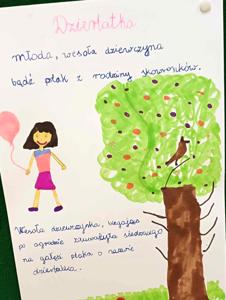 Dzierlatka
młoda, wesoła dziewczyna
bądź ptak z rodziny skowronków.
Wesoła dziewczynka, biegając
po ogrodzie zauważyła siedzącego
na gałęzi ptaka o nazwie
dzierlatka.